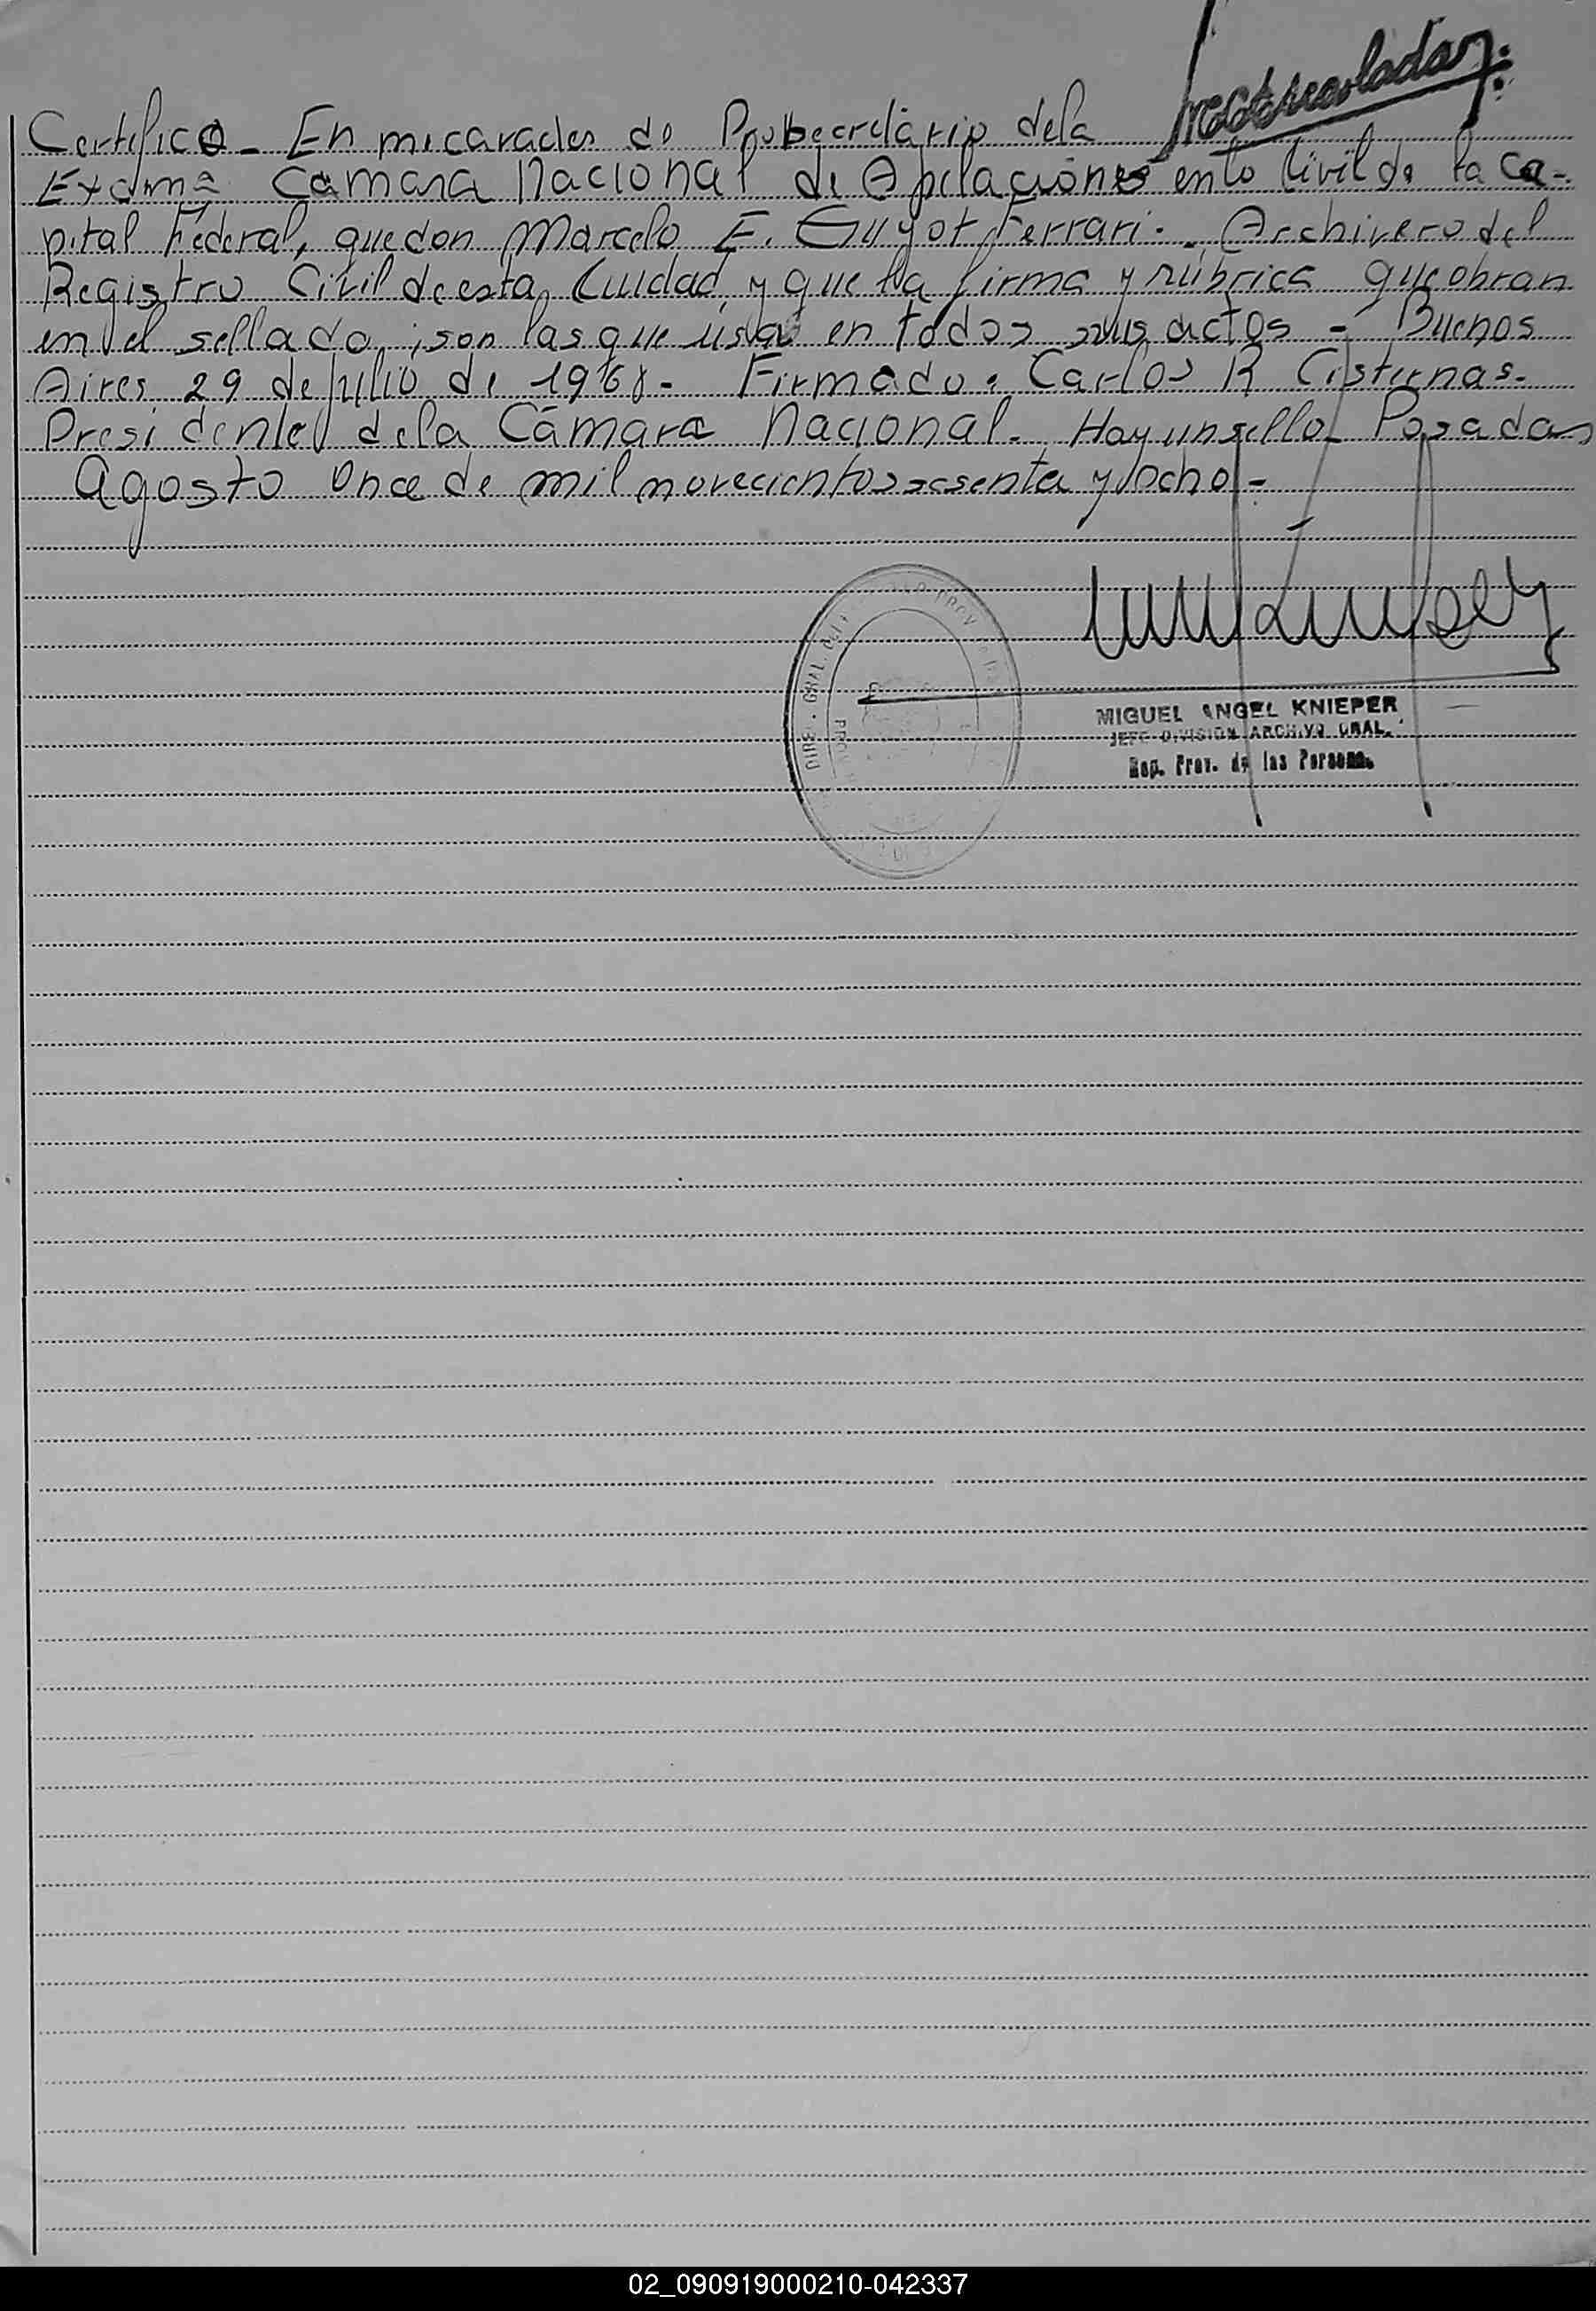 Matriculadas
Certifico - En mi caracter de Prosecretario dela
Excma Cámara Nacional de Apelaciónes en lo Civil de la Ca-
pital Federal, que don Marcelo E. Guyot Ferrari. Archivero del
Registro Civil de esta Cuidad, y que la firma y rúbrica que obran
en el sellado, son las que usva en todos sus actos - Buenos
Aires 29 de Julio de 1968 - Firmado. Carlos R Cisternas.
Presidente dela Cámara Nacional. Hay un sello Posadas
Agosto Once de mil novecientos sesenta y ocho -
MIGUEL ANGEL KNIEPER
JEFE DIVISION ARCHIVO GRAL.
Rep. Prov. de las Personas
DIRE. GRAL. DEL
PROV
02_090919000210-042337